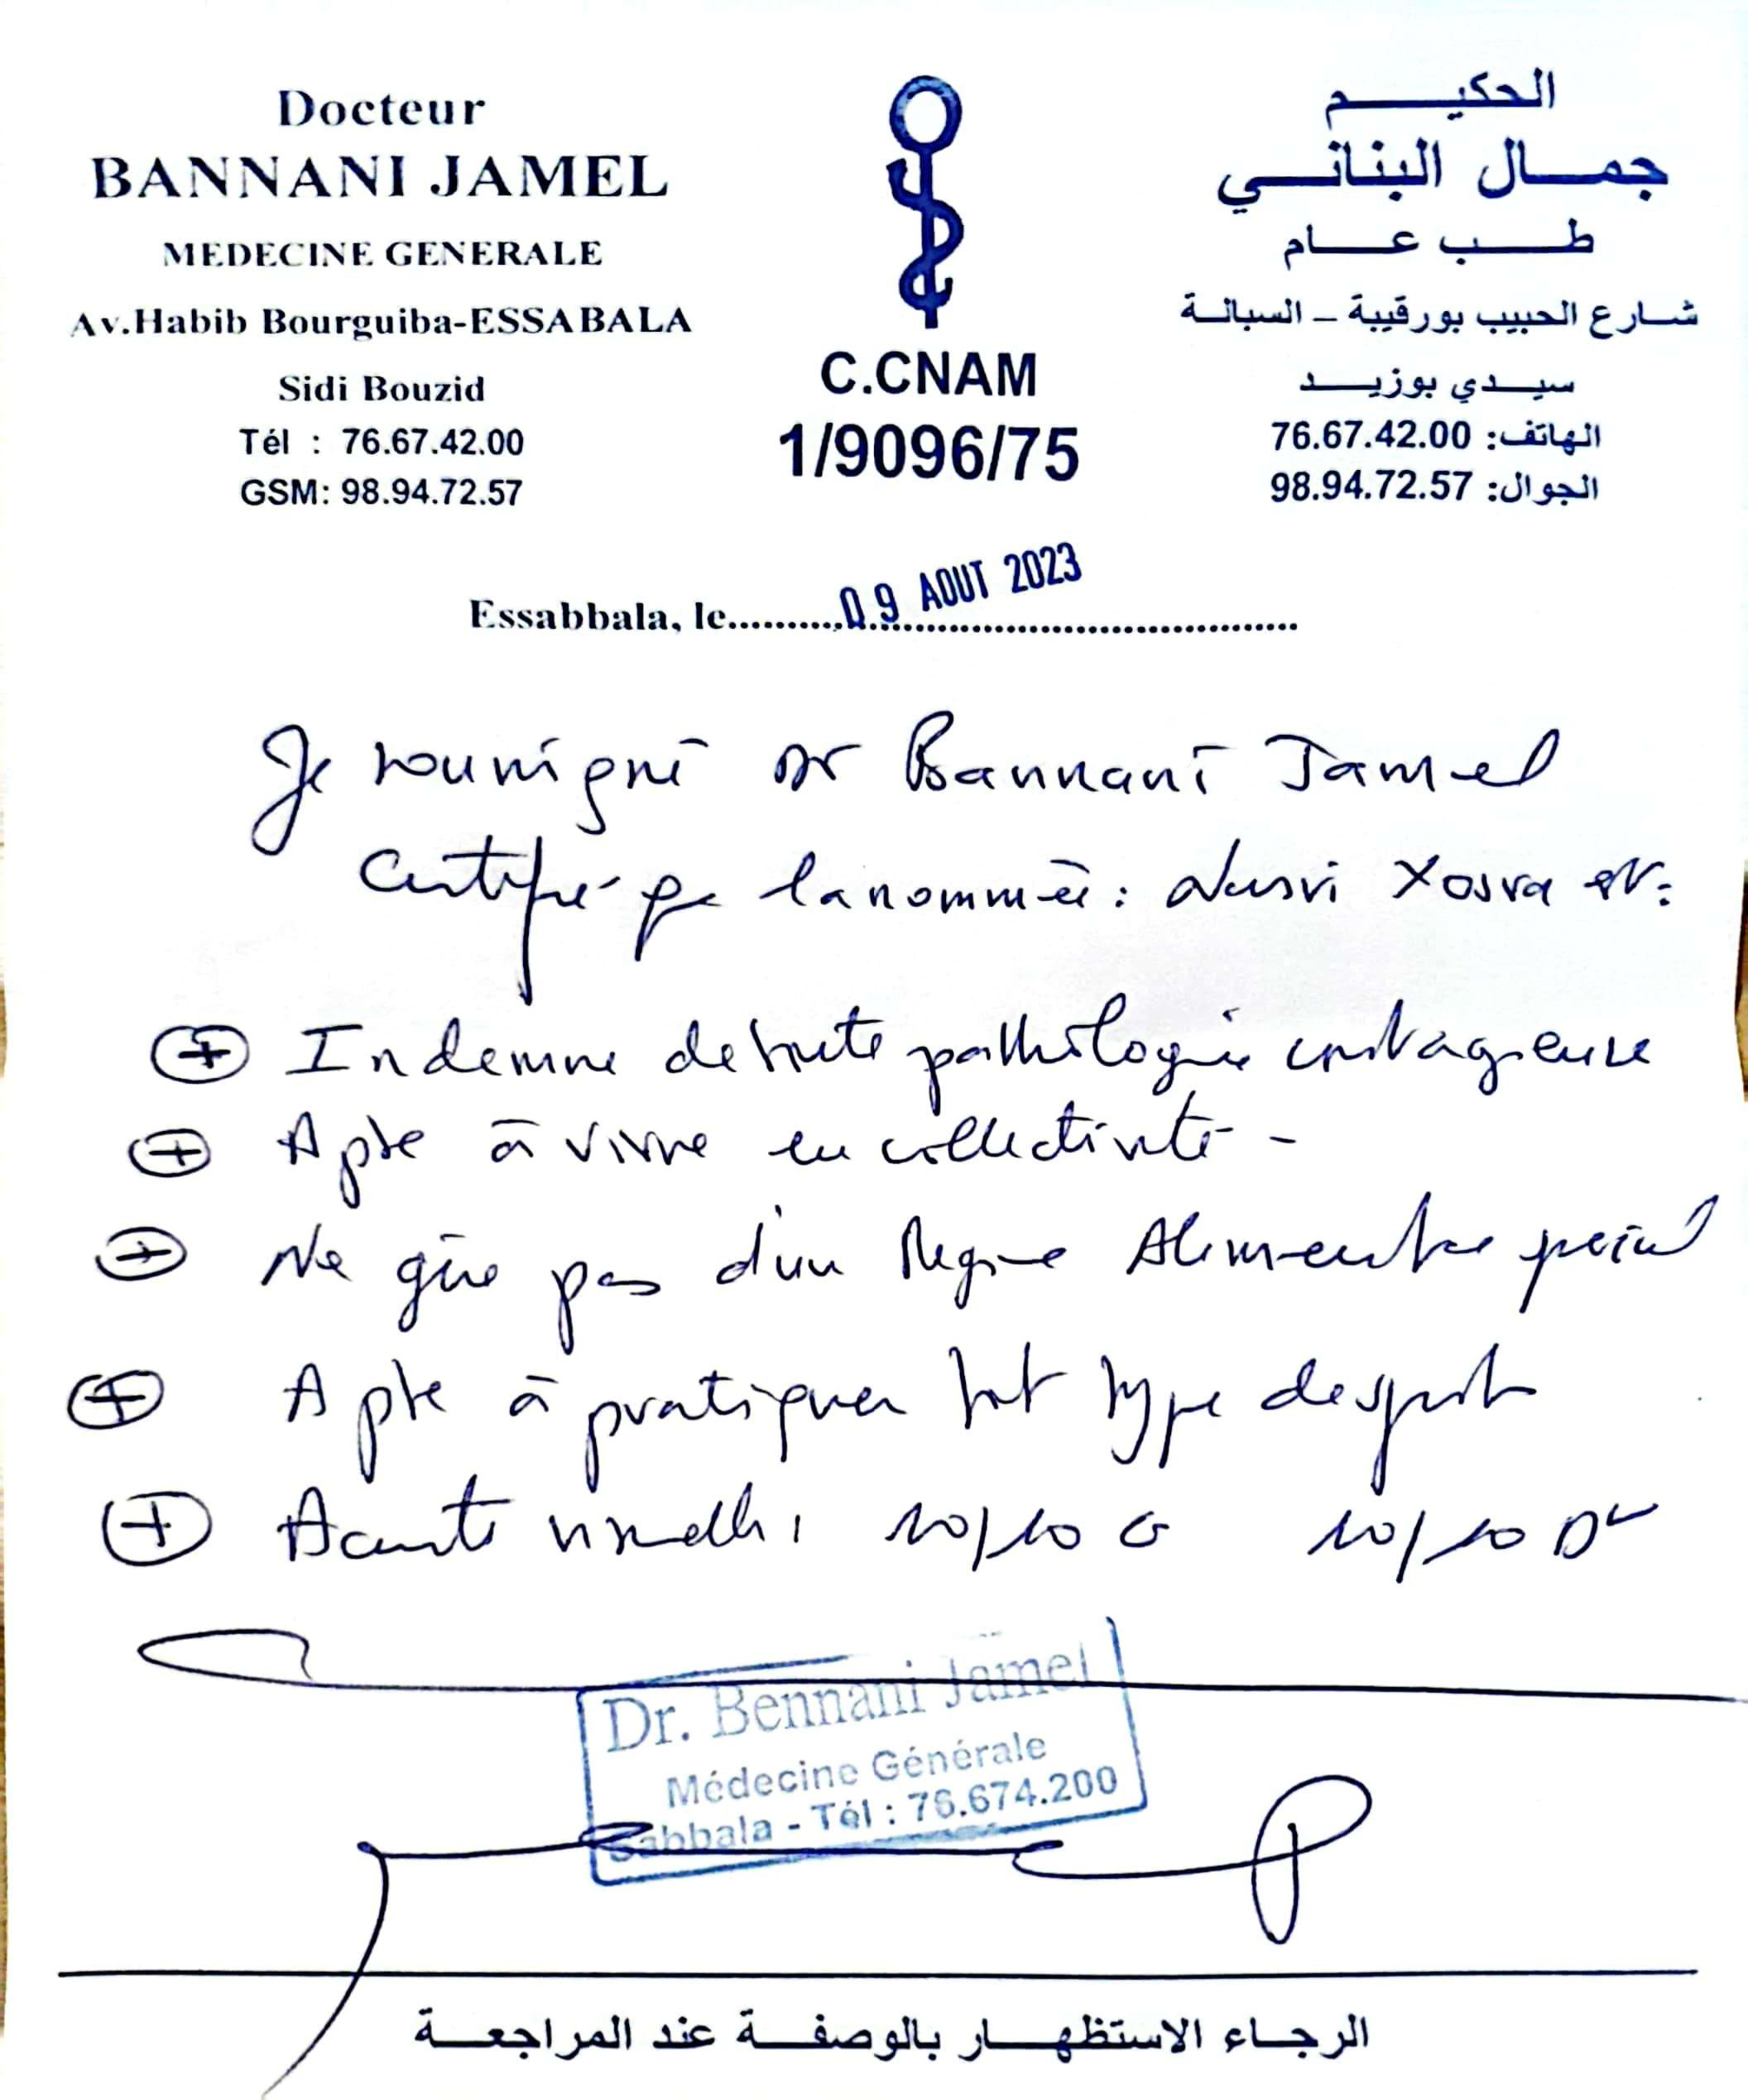 Docteur
BANNANI JAMEL
MEDECINE GENERALE
Av.Habib Bourguiba-ESSABALA
Sidi Bouzid
Tél : 76.67.42.00
GSM: 98.94.72.57
C.CNAM
1/9096/75
الحكيم
جمال البناني
طب عام
شارع الحبيب بورقيبة - السبالة
سيدي بوزيد
الهاتف: 76.67.42.00
الجوال: 98.94.72.57
Essabbala, le.......... 09 AOUT 2023
Je soussigné Dr Bannani Jamel
Certifie que la nommée : Nasri Yosra est :
+ Indemne de toute pathologie contagieuse
+ Apte à vivre en collectivité -
+ Ne pas d'un Régime Alimentaire spécial
+ Apte à pratiquer tout type de sport
+ Acuité visuelle : 10/10 G 10/10 Dt
Dr. Bennani Jamel
Médecine Générale
Sabbala - Tél : 76.674.200
الرجاء الاستظهار بالوصفة عند المراجعة